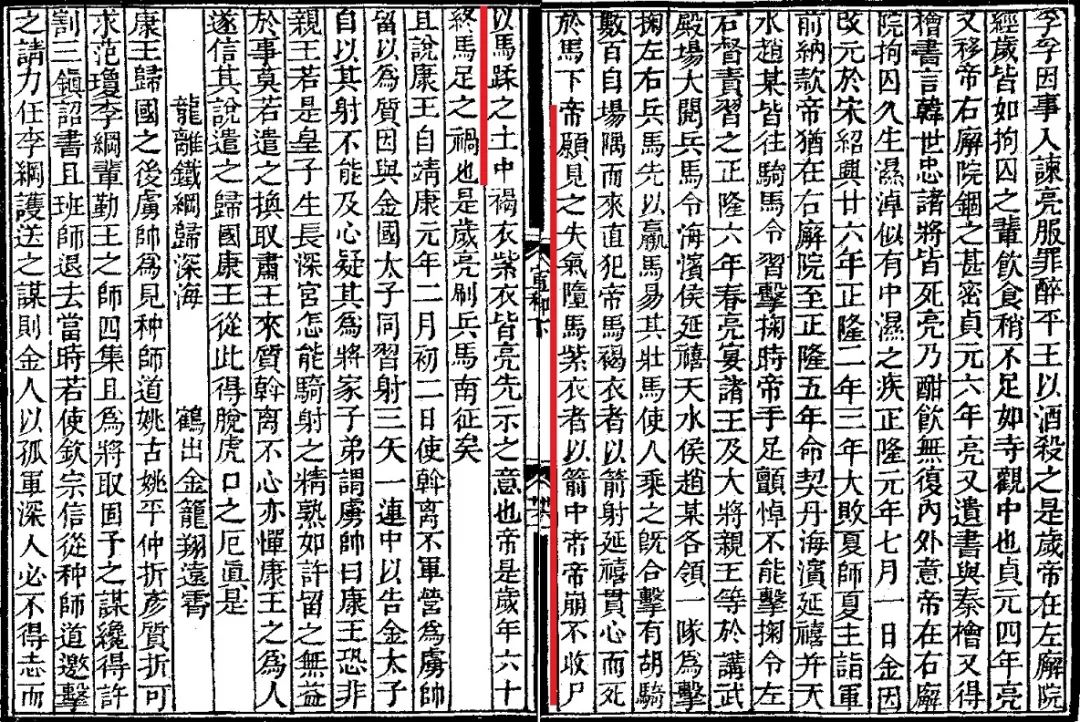 孛因事入諫亮服罪醉平王以酒殺之是歲帝在左廨院
經歲皆如拘囚之輩飲食稍不足如寺觀中也貞元四年亮
又移帝右廨院錮之甚密貞元六年亮又遺書與秦檜又得
檜書言韓世忠諸將皆死亮乃酣飲無復內外意帝在右廨
院拘囚久生濕淖似有中濕之疾正隆元年七月一日金因
改元於宋紹興廿六年正隆二年三年大敗夏師夏主詣軍
前納款帝猶在右廨院至正隆五年命契丹海濱延禧并天
水趙某皆往騎馬令習擊掬時帝手足顫悼不能擊掬令左
右督責習之正隆六年春亮宴諸王及大將親王等於講武
殿場大閱兵馬令海濱侯延禧天水侯趙某各領一隊為擊
掬左右兵馬先以羸馬易其壯馬使人乘之既合擊有胡騎
數百自場隅而來直犯帝馬褐衣者以箭射延禧貫心而死
於馬下帝願見之失氣墮馬紫衣者以箭中帝帝崩不收尸
以馬蹂之土中褐衣紫衣皆亮先示之意也帝是歲年六十
終馬足之禍也是歲亮刷兵馬南征矣
且說康王自靖康元年二月初二日使斡离不軍營為虜帥
留以為質因與金國太子同習射三矢一連中以告金太子
自以其射不能及心疑其為將家子弟謂虜帥曰康王恐非
親王若是皇子生長深宮怎能騎射之精熟如許留之無益
於事莫若遣之換取肅王來質斡离不心亦憚康王之為人
遂信其說遣之歸國康王從此得脫虎口之厄真是
龍離鐵網歸深海 鶴出金籠翔遠霄
康王歸國之後虜帥為見种師道姚古姚平仲折彥質折可
求范瓊李綱輩勤王之師四集且為將取固予之謀纔得許
割三鎮詔書且班師退去當時若使欽宗信從种師道邀擊
之請力任李綱護送之謀則金人以孤軍深入必不得志而